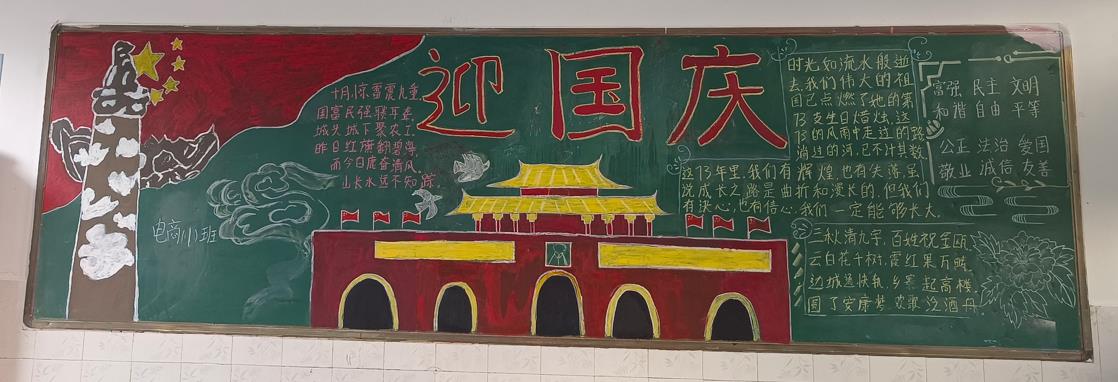 迎国庆
十月惊雷震九重
国富民强
城头城下聚农工
昨日红旗翻碧
而今日鹿奋清风
山长水远不知踪
电商1班
时光如流水般逝
去我们伟大的祖
国已点燃了她的第
73支生日蜡烛,这
73的风雨中走过的路
淌过的河,已不计其数
这73年里,我们有辉煌,也有失落,虽
说成长之路是曲折和漫长的,但我们
有决心,也有信心,我们一定能够长大。
富强 民主 文明
和谐 自由 平等
公正 法治 爱国
敬业 诚信 友善
三秋清九宇,百姓祝金瓯
云白花千树,霞红果万畴
边城逸快轨,乡景起高楼
圆了安康梦 欢歌泛酒舟